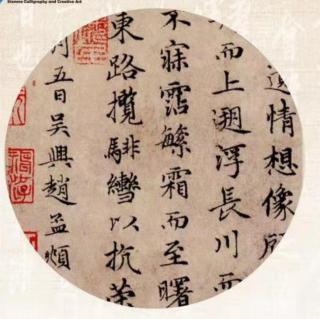 Calligraphy and Creative Art
遺情想像
而上遡浮長川而
不寐霑繁霜而至曙
東路攬騑轡以抗策
五日吳興趙孟頫